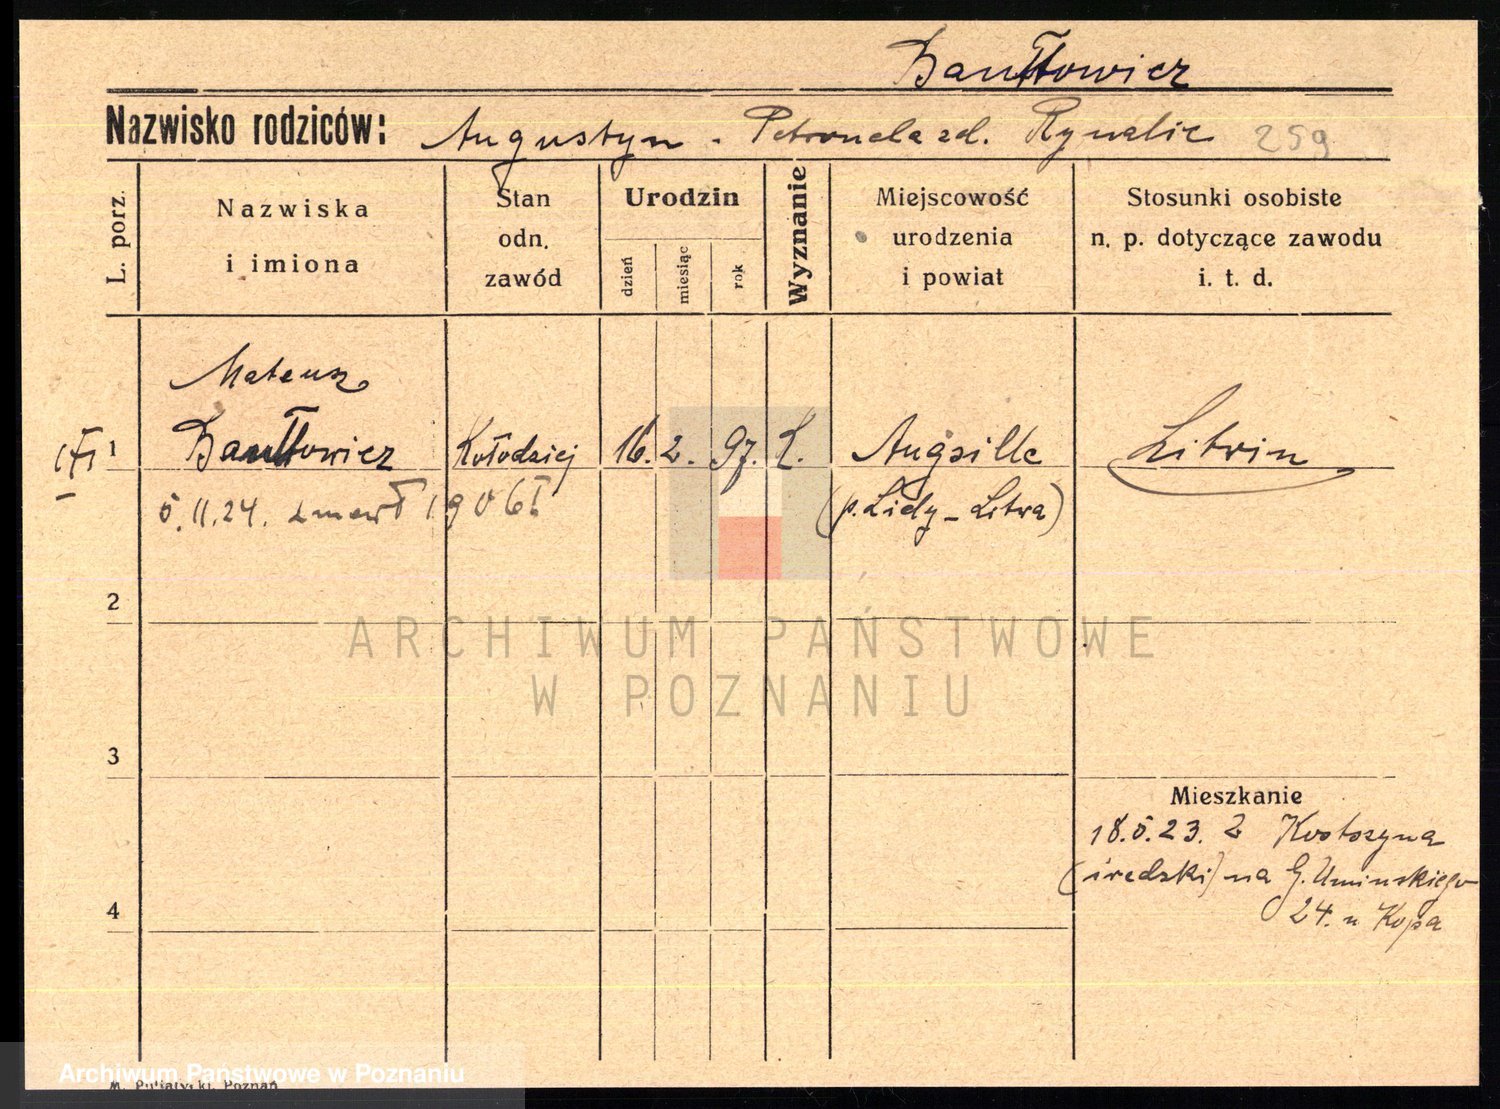 Nazwisko rodziców: Augustyn - Petronela zd.
259
L. porz.
Nazwiska
i imiona
Stan
odn.
zawód
Urodzin
dzień
miesiąc
rok
Wyznanie
Miejscowość
urodzenia
i powiat
Stosunki osobiste
n. p. dotyczące zawodu
i. t. d.
Mateusz
1 Kołodziej 16. 2. 97. K. Litwin
5.II.24. zmarł
(p. Lidy - Litwa)
2
ARCHIWUM PAŃSTWOWE
W POZNANIU
3
Mieszkanie
18.5.23. z Krotoszyna
na G. Umińskiego
4
24. u Kopa
Archiwum Państwowe w Poznaniu
Poznań